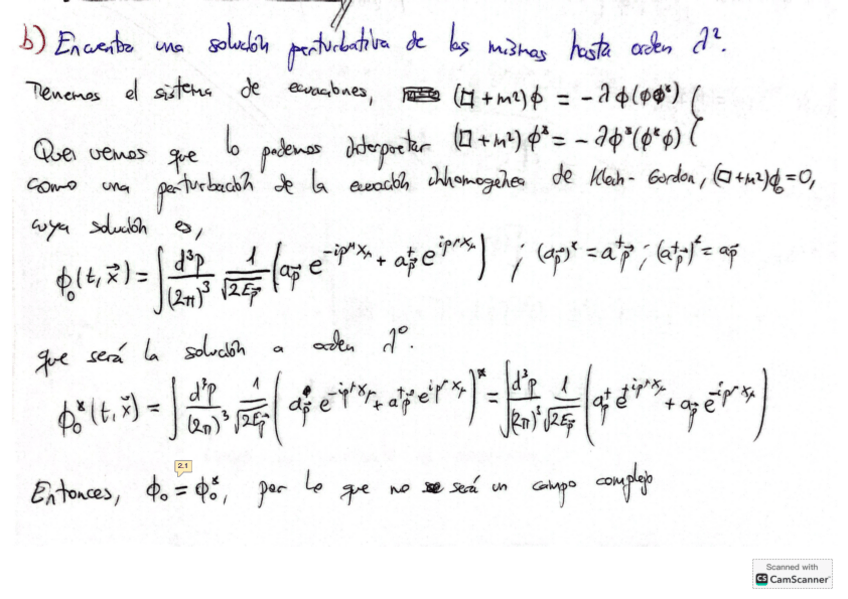 b) Encuentra una solución perturbativa de las mismas hasta orden λ².
Tenemos el sistema de ecuaciones, (□ + m²)ϕ = - λ ϕ(ϕϕ*)
(□ + m²) ϕ* = - λ ϕ*(ϕ*ϕ)
Que vemos que lo podemos interpretar
como una perturbación de la ecuación inhomogénea de Klein-Gordon, (□+m²)ϕ₀=0,
cuya solución es,
ϕ₀(t, x⃗) = ∫ d³p/(2π)³ 1/√2E_p⃗ (a_p⃗ e^{-ip^μ x_μ} + a⁺_p⃗ e^{ip^μ x_μ}) ; (a_p⃗)* = a⁺_p⃗ ; (a⁺_p⃗)* = a_p⃗
que será la solución a orden λ⁰.
ϕ₀*(t, x⃗) = ∫ d³p/(2π)³ 1/√2E_p⃗ (a_p⃗ e^{-ip^μ x_μ} + a⁺_p⃗ e^{ip^μ x_μ})* = ∫ d³p/(2π)³ 1/√2E_p⃗ (a⁺_p⃗ e^{+ip^μ x_μ} + a_p⃗ e^{-ip^μ x_μ})
2.1
Entonces, ϕ₀ = ϕ₀*, por lo que no será un campo complejo
Scanned with
CS CamScanner